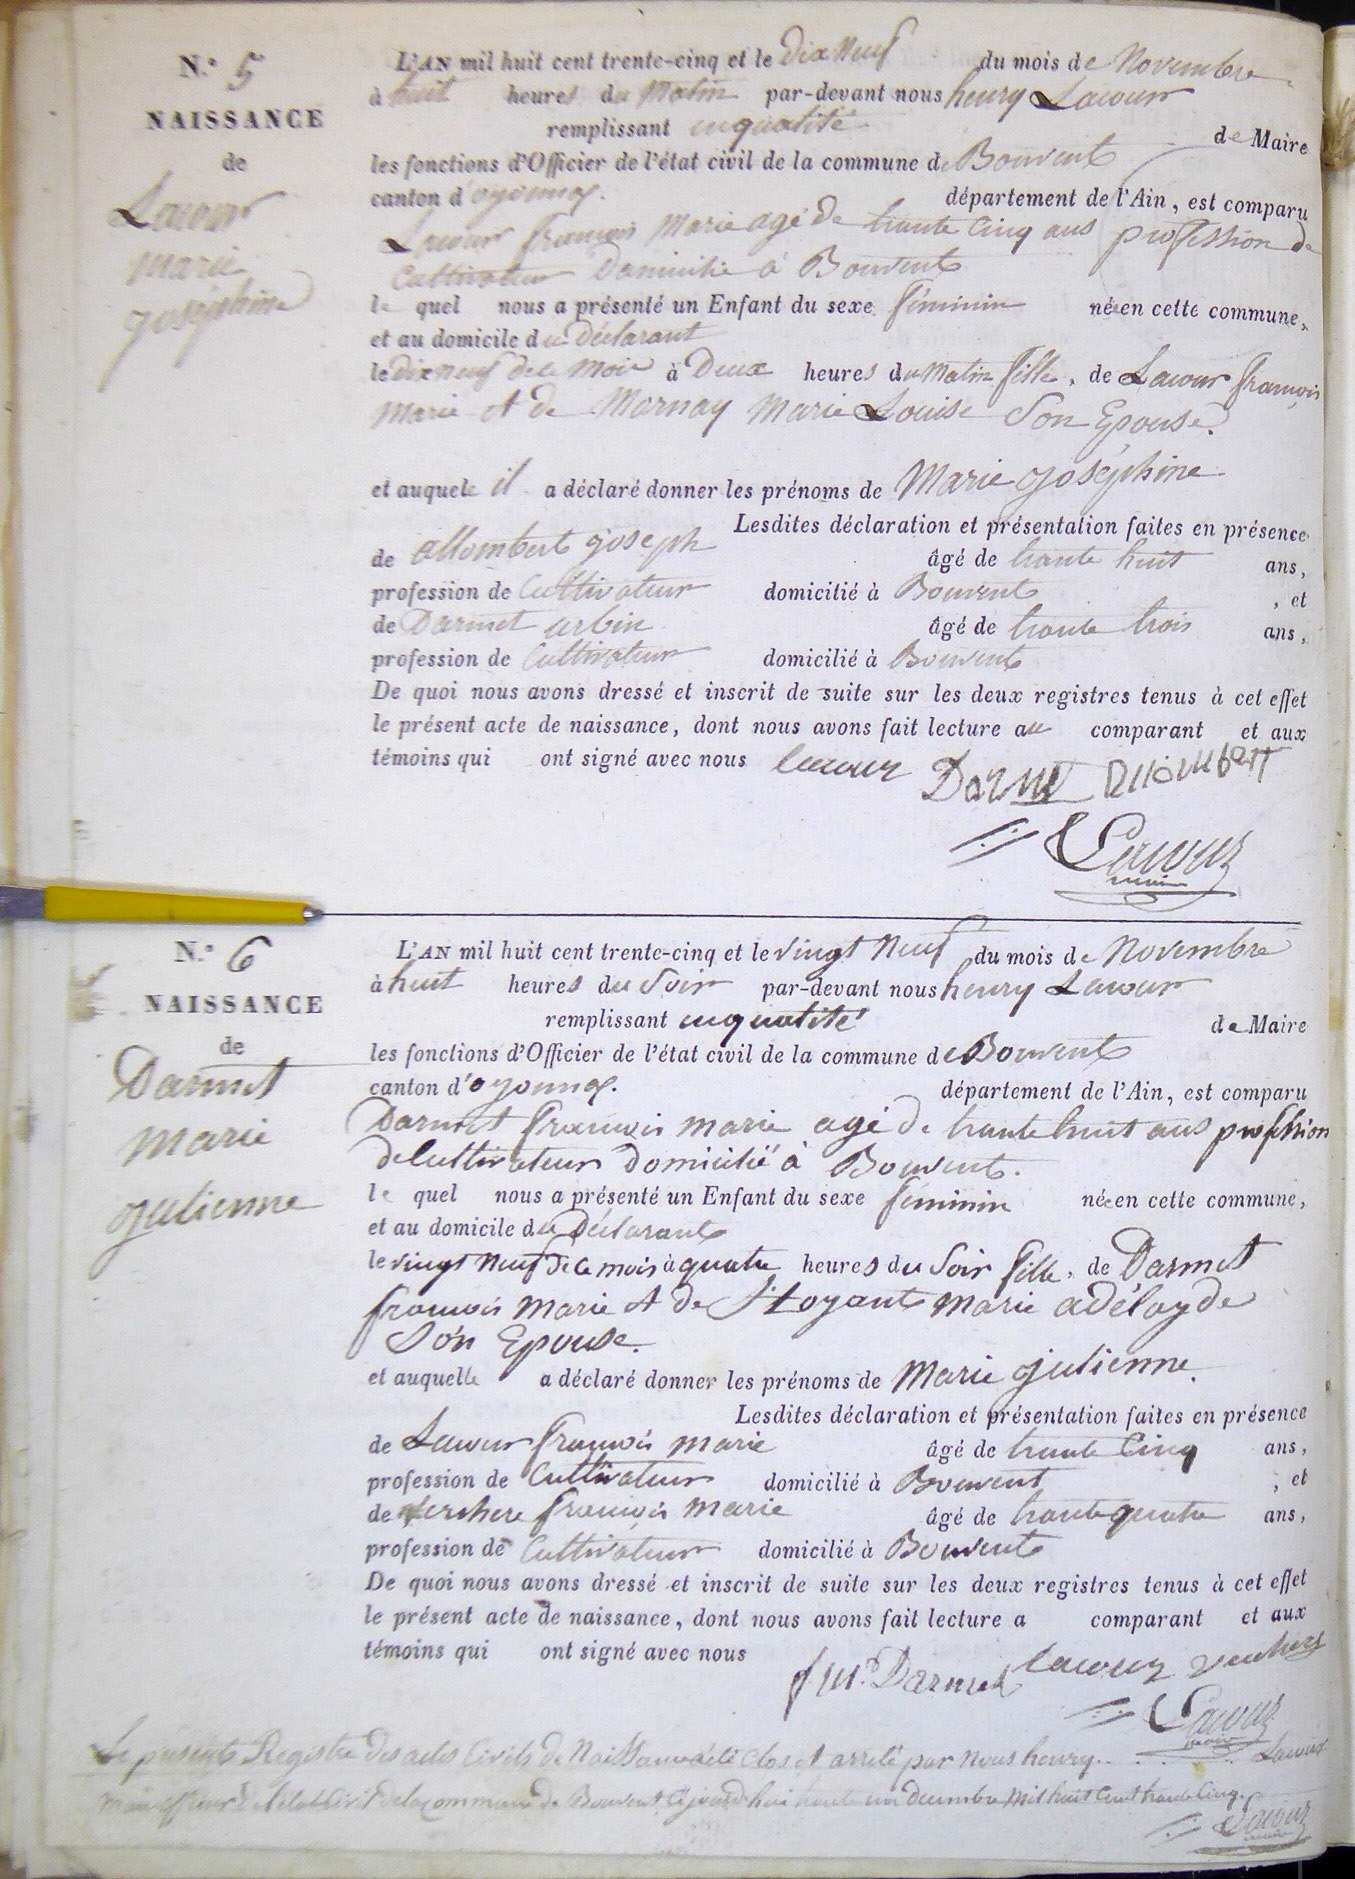 N.° 5
NAISSANCE
de
Lacour
marie
joséphine
L'AN mil huit cent trente-cinq et le dix Neuf du mois de Novembre
à huit heures du Matin par-devant nous henry Lacour
remplissant en qualité de Maire
les fonctions d'Officier de l'état civil de la commune de Bouvent
canton d'oyonnax. département de l'Ain, est comparu
Lacour françois Marie agé de trante cinq ans profession de
Cultivateur Domicilié à Bouvent
le quel nous a présenté un Enfant du sexe féminin née en cette commune,
et au domicile du Déclarant
le dix neuf de ce mois à Deux heures du Matin fille, de Lacour françois
Marie et de Mornay Marie Louise Son Epouse.
et auquele il a déclaré donner les prénoms de Marie joséphine
Lesdites déclaration et présentation faites en présence
de allombert joseph âgé de trante huit ans,
profession de Cultivateur domicilié à Bouvent, et
de Darmet arbin âgé de trante trois ans,
profession de Cultivateur domicilié à Bouvent
De quoi nous avons dressé et inscrit de suite sur les deux registres tenus à cet effet
le présent acte de naissance, dont nous avons fait lecture au comparant et aux
témoins qui ont signé avec nous lacour Darmet allombert
Lacour
maire
N.° 6
NAISSANCE
de
Darmet
marie
julienne
L'AN mil huit cent trente-cinq et le vingt Neuf du mois de Novembre
à huit heures du Soir par-devant nous henry Lacour
remplissant en qualité de Maire
les fonctions d'Officier de l'état civil de la commune de Bouvent
canton d'oyonnax. département de l'Ain, est comparu
Darmet françois marie agé de trante huit ans profession
de Cultivateur domicilié à Bouvent.
le quel nous a présenté un Enfant du sexe féminin née en cette commune,
et au domicile du Déclarant
le vingt Neuf de ce mois à quatre heures du Soir fille, de Darmet
françois marie et de St oyant marie adélayde
Son Epouse.
et auquelle a déclaré donner les prénoms de Marie julienne.
Lesdites déclaration et présentation faites en présence
de Lacour françois marie âgé de trante Cinq ans,
profession de Cultivateur domicilié à Bouvent, et
de françois marie âgé de trante quatre ans,
profession de Cultivateur domicilié à Bouvent
De quoi nous avons dressé et inscrit de suite sur les deux registres tenus à cet effet
le présent acte de naissance, dont nous avons fait lecture a comparant et aux
témoins qui ont signé avec nous
f m. Darmet lacour
Lacour
maire
Le présent Registre des actes Civils de Naissance a été clos et arrêté par Nous henry Lacour
Maire officier de l'etat civil de la commune de Bouvent ce jourd'hui trante un decembre Mil huit Cent trante Cinq.
Lacour
maire